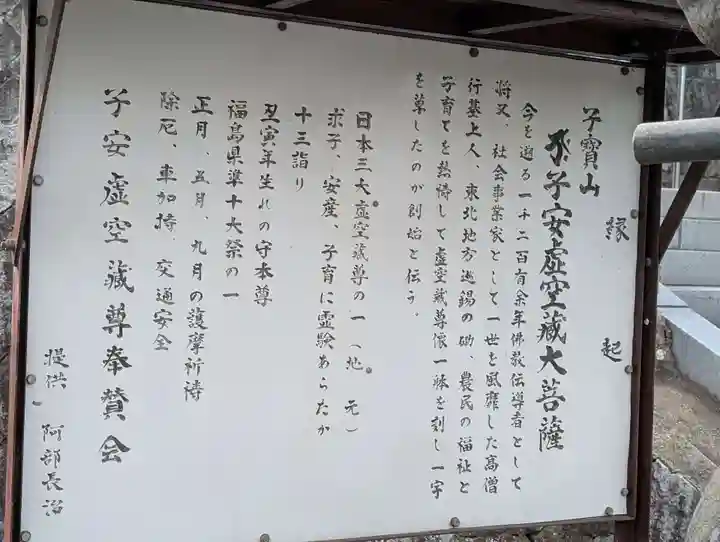 子寶山
縁起
子安虚空藏大菩薩
今を遡る一千二百有余年佛教伝導者として
将又、社会事業家として一世を風靡した高僧
行基上人、東北地方巡錫の砌、農民の福祉と
子育てを熱祷して虚空蔵尊像一躰を刻し一宇
を草したのが創始と伝う。
日本三大虚空蔵尊の一（地元）
求子、安産、子育に霊験あらたか
十三詣り
丑寅年生れの守本尊
福島県準十大祭の一
正月、五月、九月の護摩祈祷
除厄、車加持、交通安全
子安虚空藏尊奉賛会
提供 阿部長治